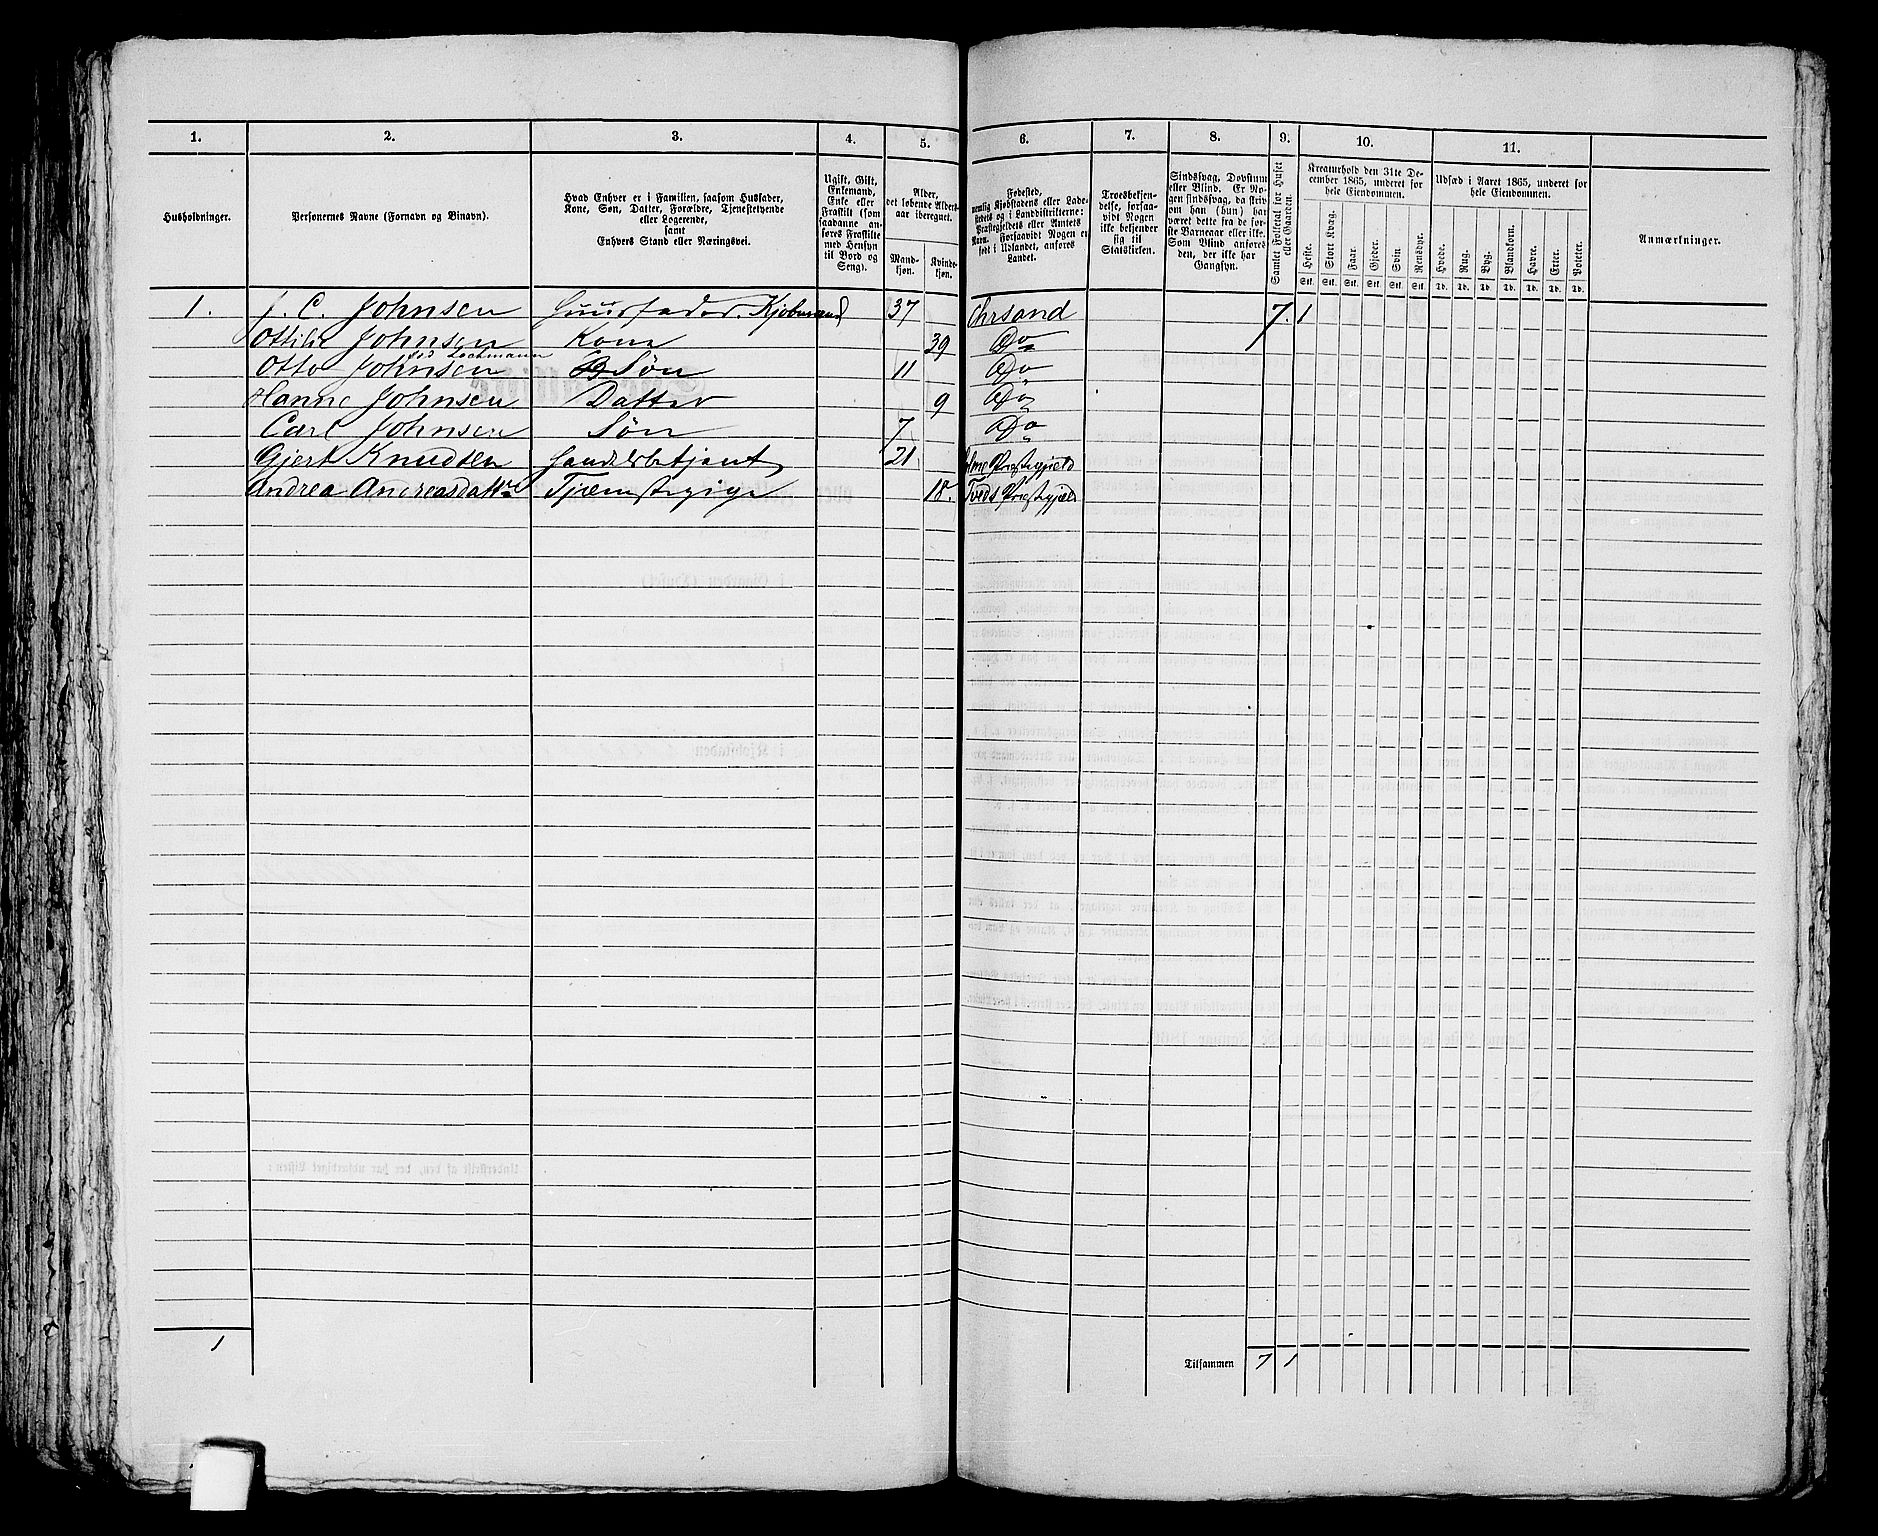 1. 2. 3. 4. 5. 6. 7. 8. 9. 10. 11.
Husholdninger.
Personernes Navne (Fornavn og Binavn).
Hvad Enhver er i Familien, saasom Husfader,
Kone, Søn, Datter, Forældre, Tjenestetyende
eller Logerende,
samt
Enhvers Stand eller Næringsvei.
Ugift, Gift,
Enkemand,
Enke eller
Fraskilt (som
saadanne an-
føres Fraskilte
med Hensyn
til Bord og
Seng).
Alder,
det løbende Alders-
aar iberegnet.
Mand-
kjøn.
Kvinde-
kjøn.
Fødested,
nemlig Kjøbstadens eller Lade-
stedets og i Landdistrikterne:
Præstegjeldets eller Amtets
Navn. Forsaavidt Nogen er
født i Udlandet, anføres
Landet.
Troesbekjen-
delse, forsaa-
vidt Nogen
ikke bekjender
sig til
Statskirken.
Sindssvag, Døvstum
eller Blind. Er No-
gen sindssvag, da skriv
om han (hun) har
været dette fra de før-
ste Barneaar eller ikke.
Som Blind anføres
den, der ikke har
Gangsyn.
Samlet Folketal for Huset
eller Gaarden.
Kreaturhold den 31te De-
cember 1865, underet for
hele Eiendommen.
Heste. Stort Kvæg. Faar. Gjeder. Svin Rensdyr.
Stk. Stk. Stk. Stk. Stk. Stk.
Udsæd i Aaret 1865, underet for
hele Eiendommen.
Hvede. Rug. Byg. Blandkorn. Havre. Erter. Poteter.
Td. Td. Td. Td. Td. Td. Td.
Anmærkninger.
1. J. C. Johnsen Huusfader. Kjøbmand 37 Chrsand 7. 1
Ottilie Johnsen Kone 39 Do
fød Lochmann
Otto Johnsen Søn 11 Do
Hanne Johnsen Datter 9 Do
Carl Johnsen Søn 7 Do
Gjert Knudsen Handelsbetjent 21 Præstegjeld
Andrea Andreasdatter Tjenestepige 18. Tveds Præstegjeld
1
Tilsammen 7 1